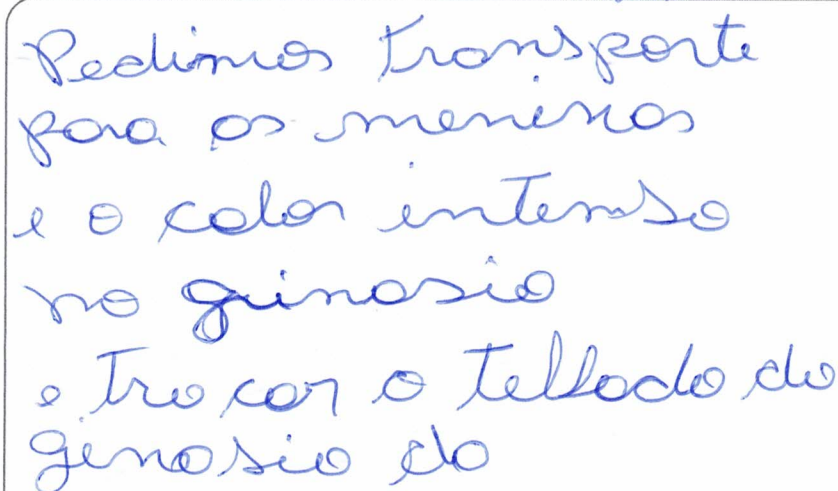 Pedimos Transporte
para os meninos
e o calor intenso
no guinasio
e Trocar o telhado do
ginasio do